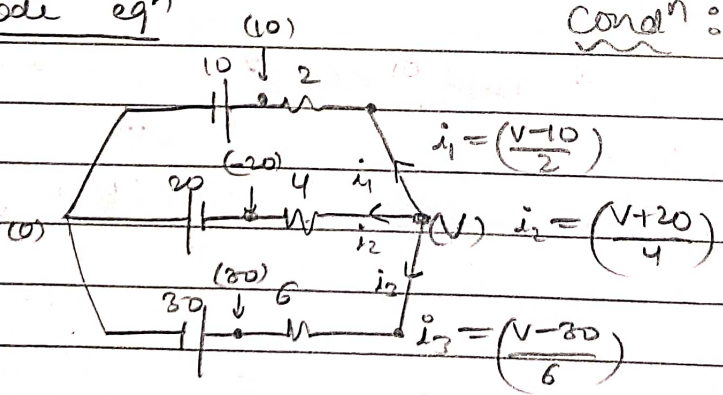 ode eqⁿ
Condⁿ :
(10)
10 2
i₁ = (V-10/2)
(-20)
20 4 i₁
(0) i₂ (V) i₂ = (V+20/4)
(30) i₃
30 6
i₃ = (V-30/6)